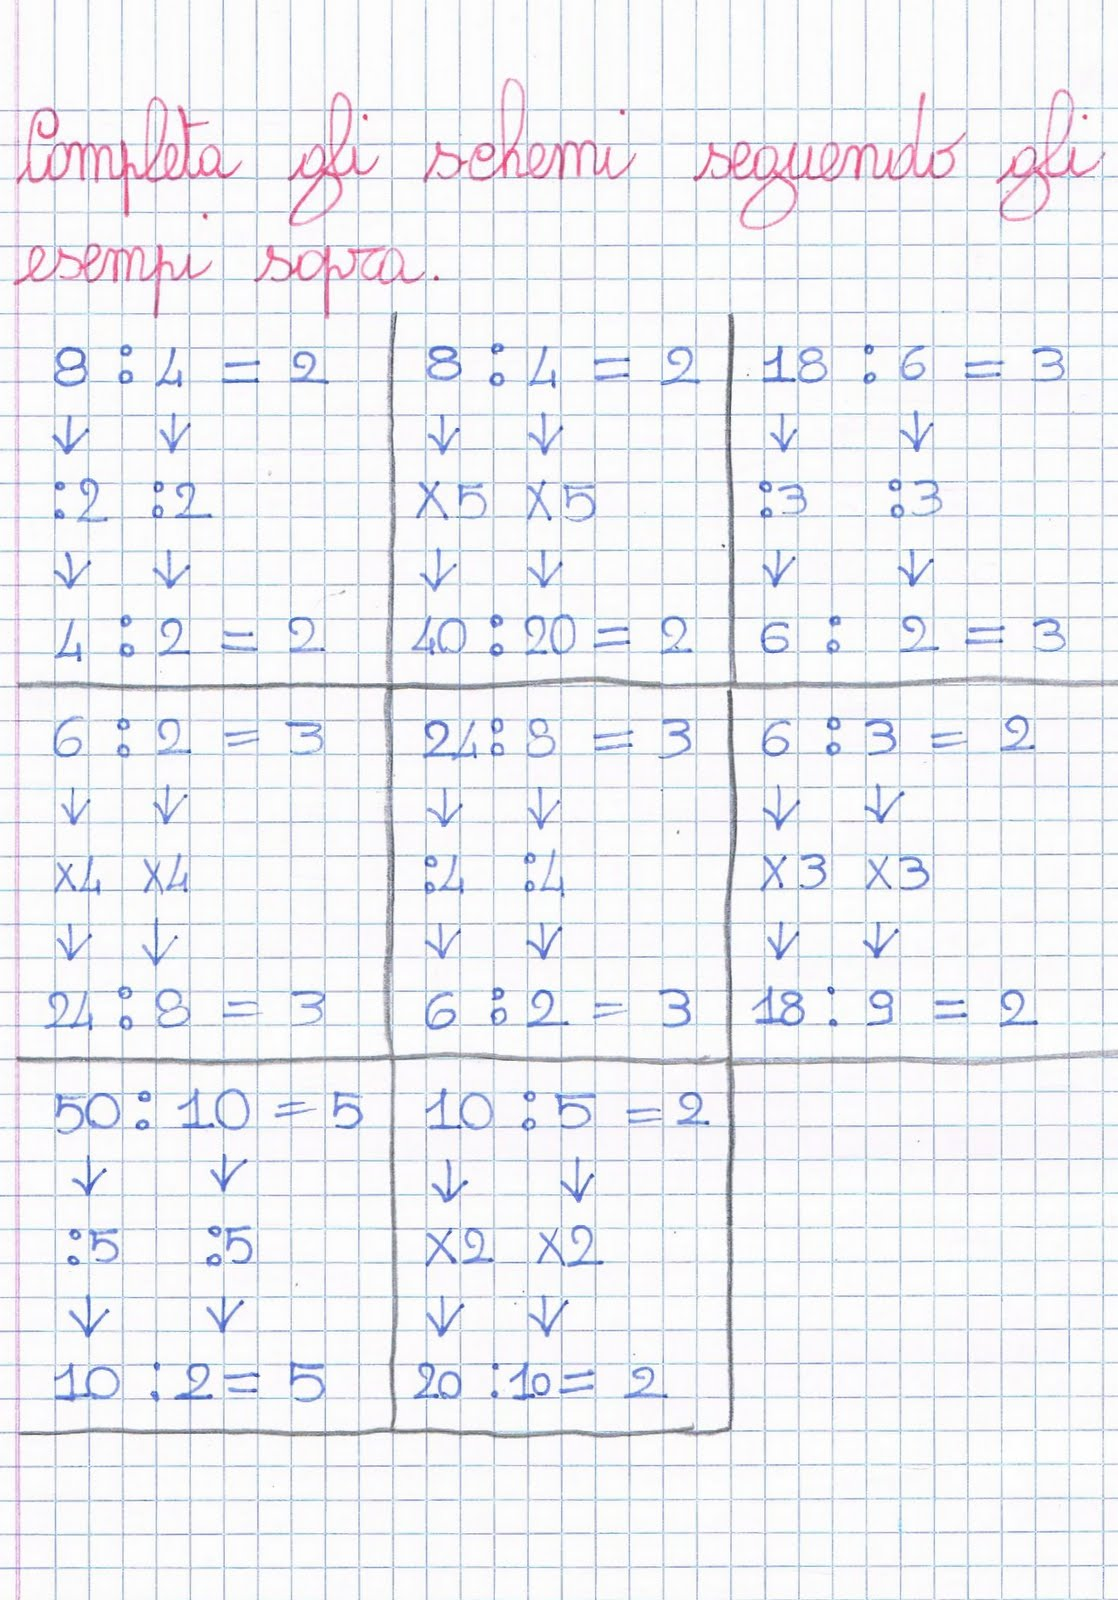 Completa gli schemi seguendo gli
esempi sopra.
8 : 4 = 2
↓ ↓
:2 :2
↓ ↓
4 : 2 = 2
8 : 4 = 2
↓ ↓
X5 X5
↓ ↓
40 : 20 = 2
18 : 6 = 3
↓ ↓
:3 :3
↓ ↓
6 : 2 = 3
6 : 2 = 3
↓ ↓
X4 X4
↓ ↓
24 : 8 = 3
24 : 8 = 3
↓ ↓
:4 :4
↓ ↓
6 : 2 = 3
6 : 3 = 2
↓ ↓
X3 X3
↓ ↓
18 : 9 = 2
50 : 10 = 5
↓ ↓
:5 :5
↓ ↓
10 : 2 = 5
10 : 5 = 2
↓ ↓
X2 X2
↓ ↓
20 : 10 = 2